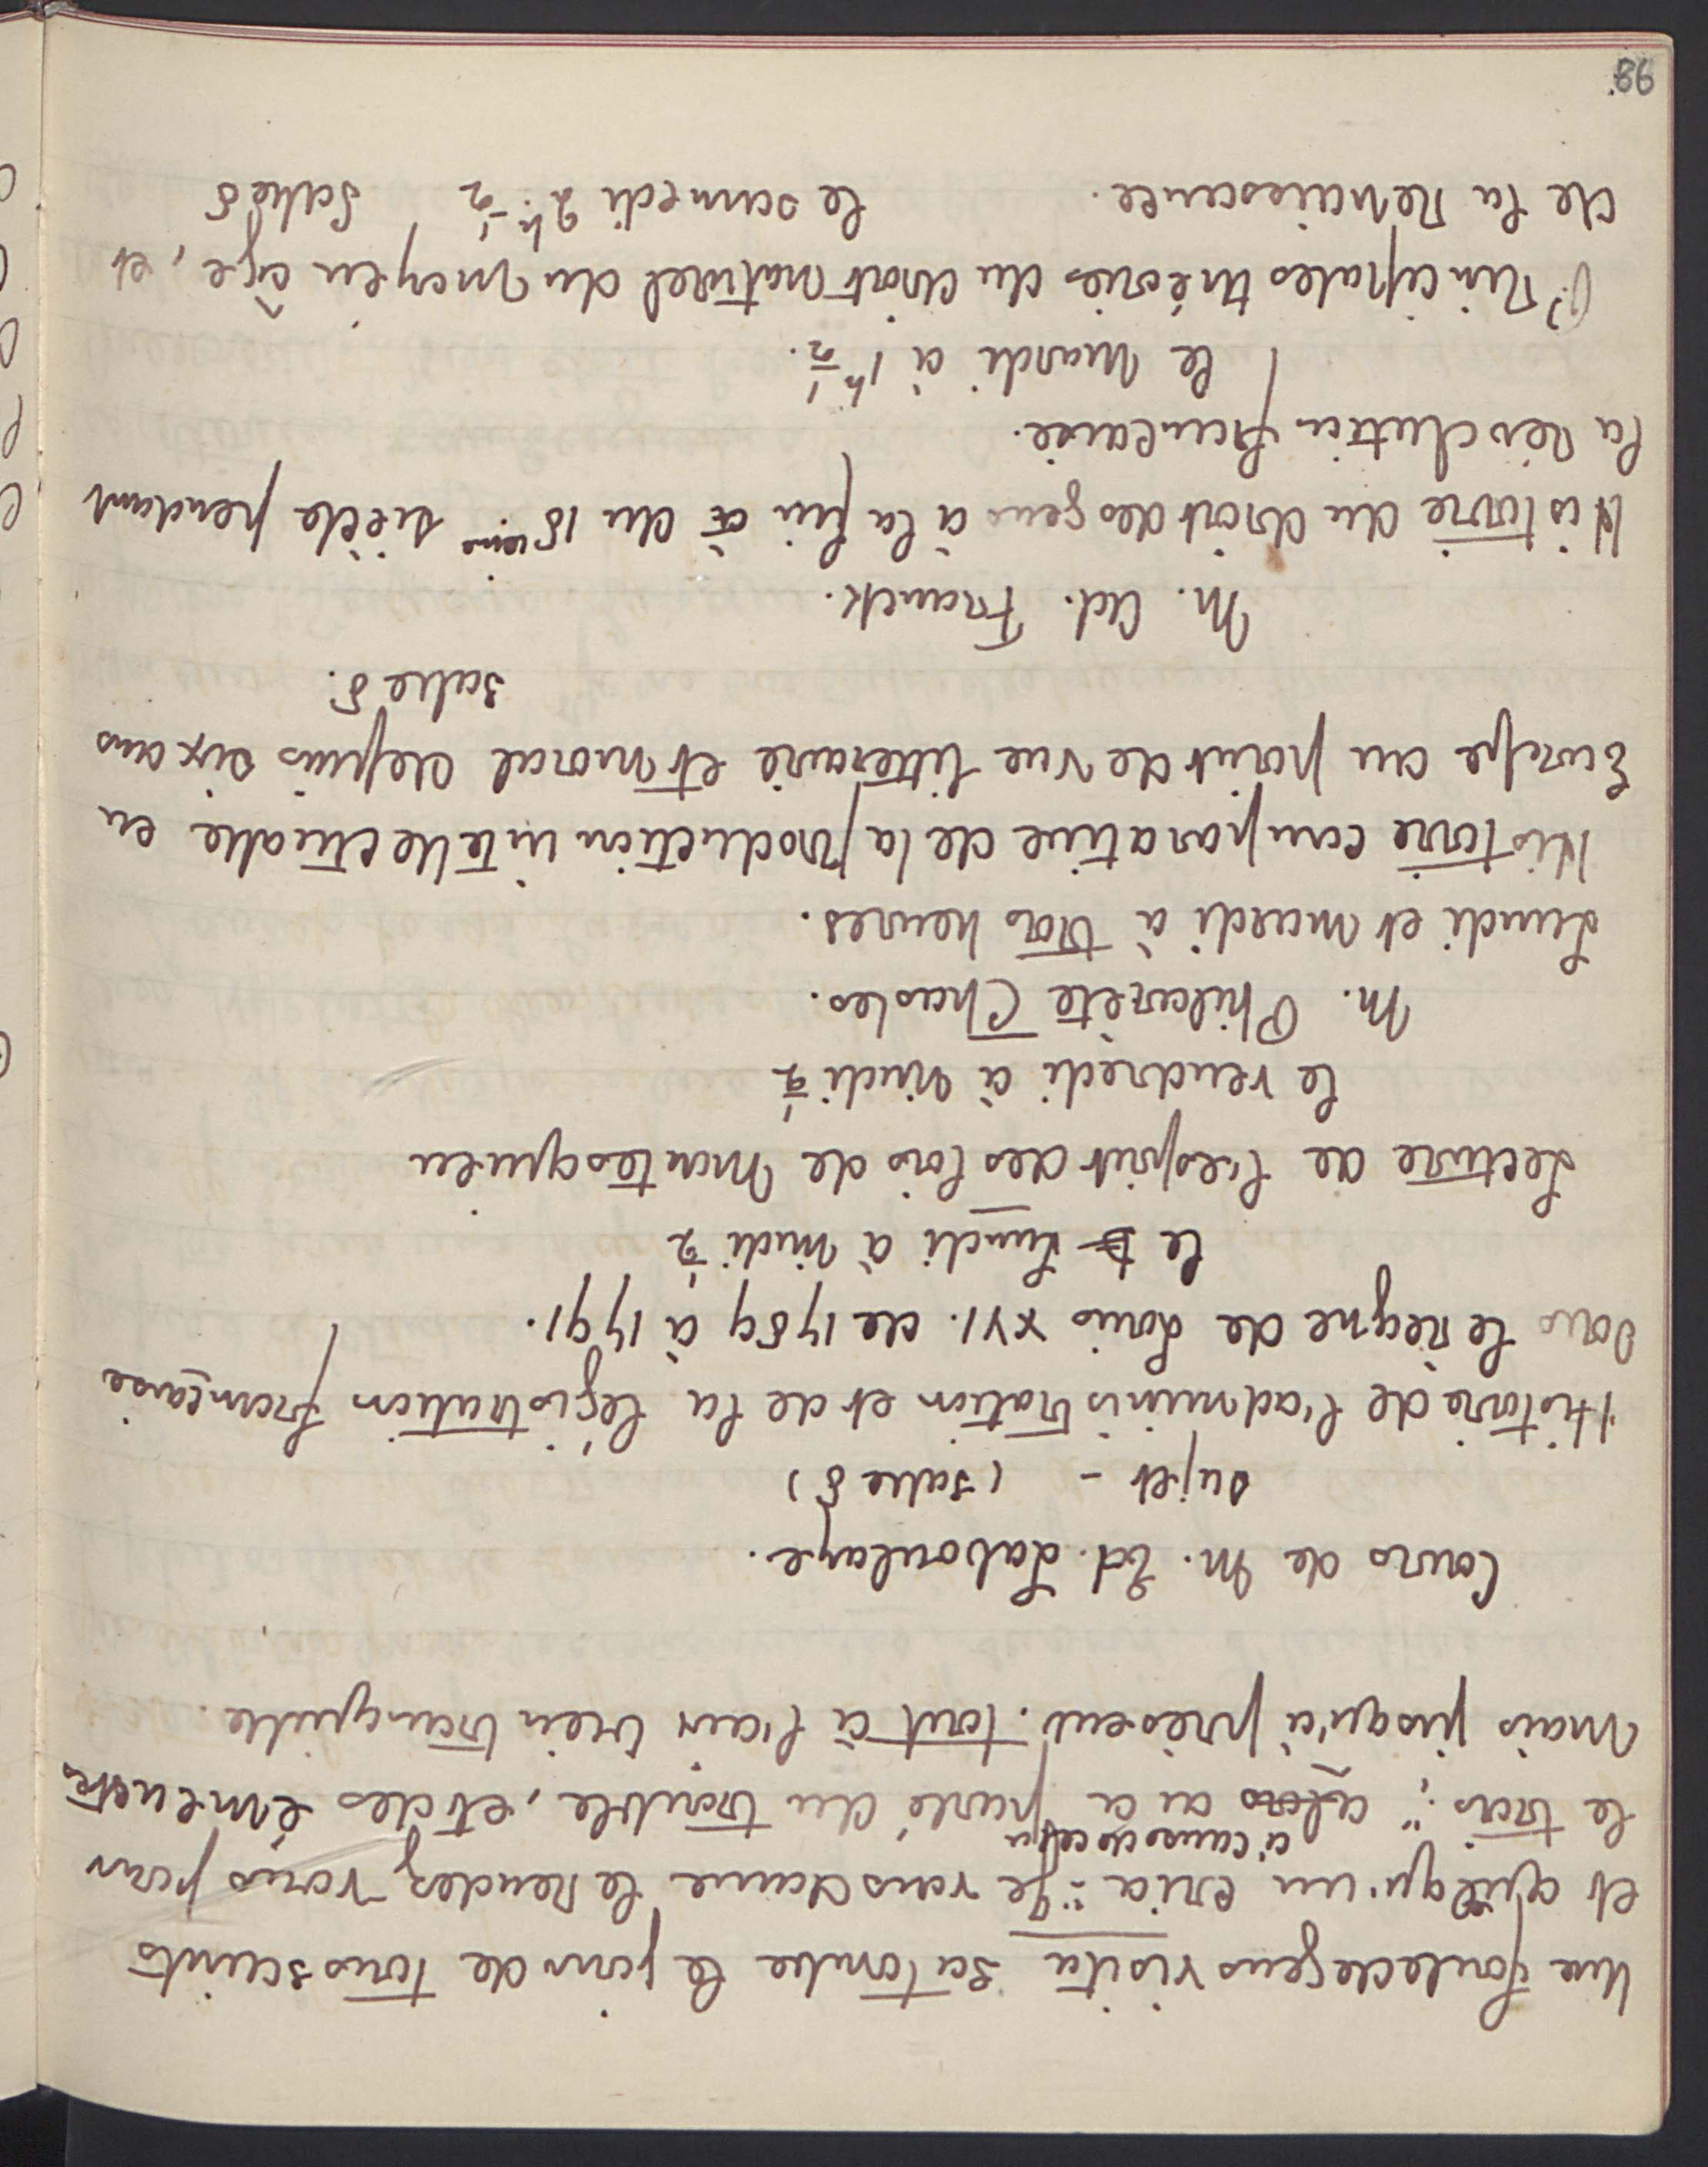 Une foule de gens visita sa tombe le jour de tous saints
et quelqu'un cria: "Je vous donne le rendez vous pour
à cause de cela
le trois"; alors on a parlé du trouble, et des émeutes
mais jusqu'à présent tout à l'air bien tranquille.
Cours de M. Ed. Laboulaye.
sujet - (salle 8)
Histoire de l'administration et de la législation française
sous le règne de Louis XVI. de 1789 à 1791.
le Lundi à midi ½
Lecture de l'esprit des lois de Montesquieu
le vendredi à midi ½
M. Philarète Chasles.
Lundi et mardi à trois heures.
Histoire comparative de la production intellectuelle en
Europe au point de vue littéraire et moral depuis dix ans
salle 8.
M. Ad. Franck.
Histoire du droit des gens à la fin à du 18ième siècle pendant
la Révolution française.
le Mardi à 1h ½.
Principales théories du droit naturel du moyen âge, et
de la Renaissance. le samedi 2h. ½ Salle 8
98